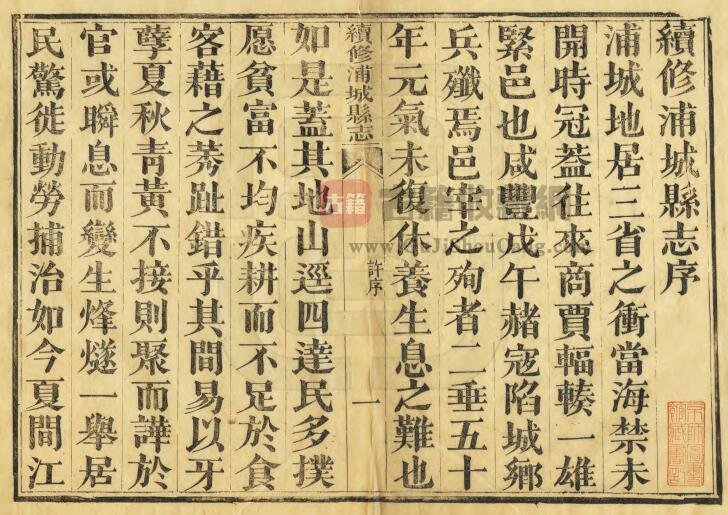 續修浦城縣志序
浦城地居三省之衝當海禁未
開時冠蓋往來商賈輻輳一雄
緊邑也咸豐戊午赭寇陷城鄉
兵殲焉邑宰之殉者二垂五十
年元氣未復休養生息之難也
續修浦城縣志
許序
一
如是蓋其地山逕四達民多撲
愿貧富不均疾耕而不足於食
客藉之莠趾錯乎其間易以牙
孽夏秋青黃不接則聚而譁於
官或瞬息而變生烽燧一舉居
民驚徙動勞捕治如今夏間江
古籍